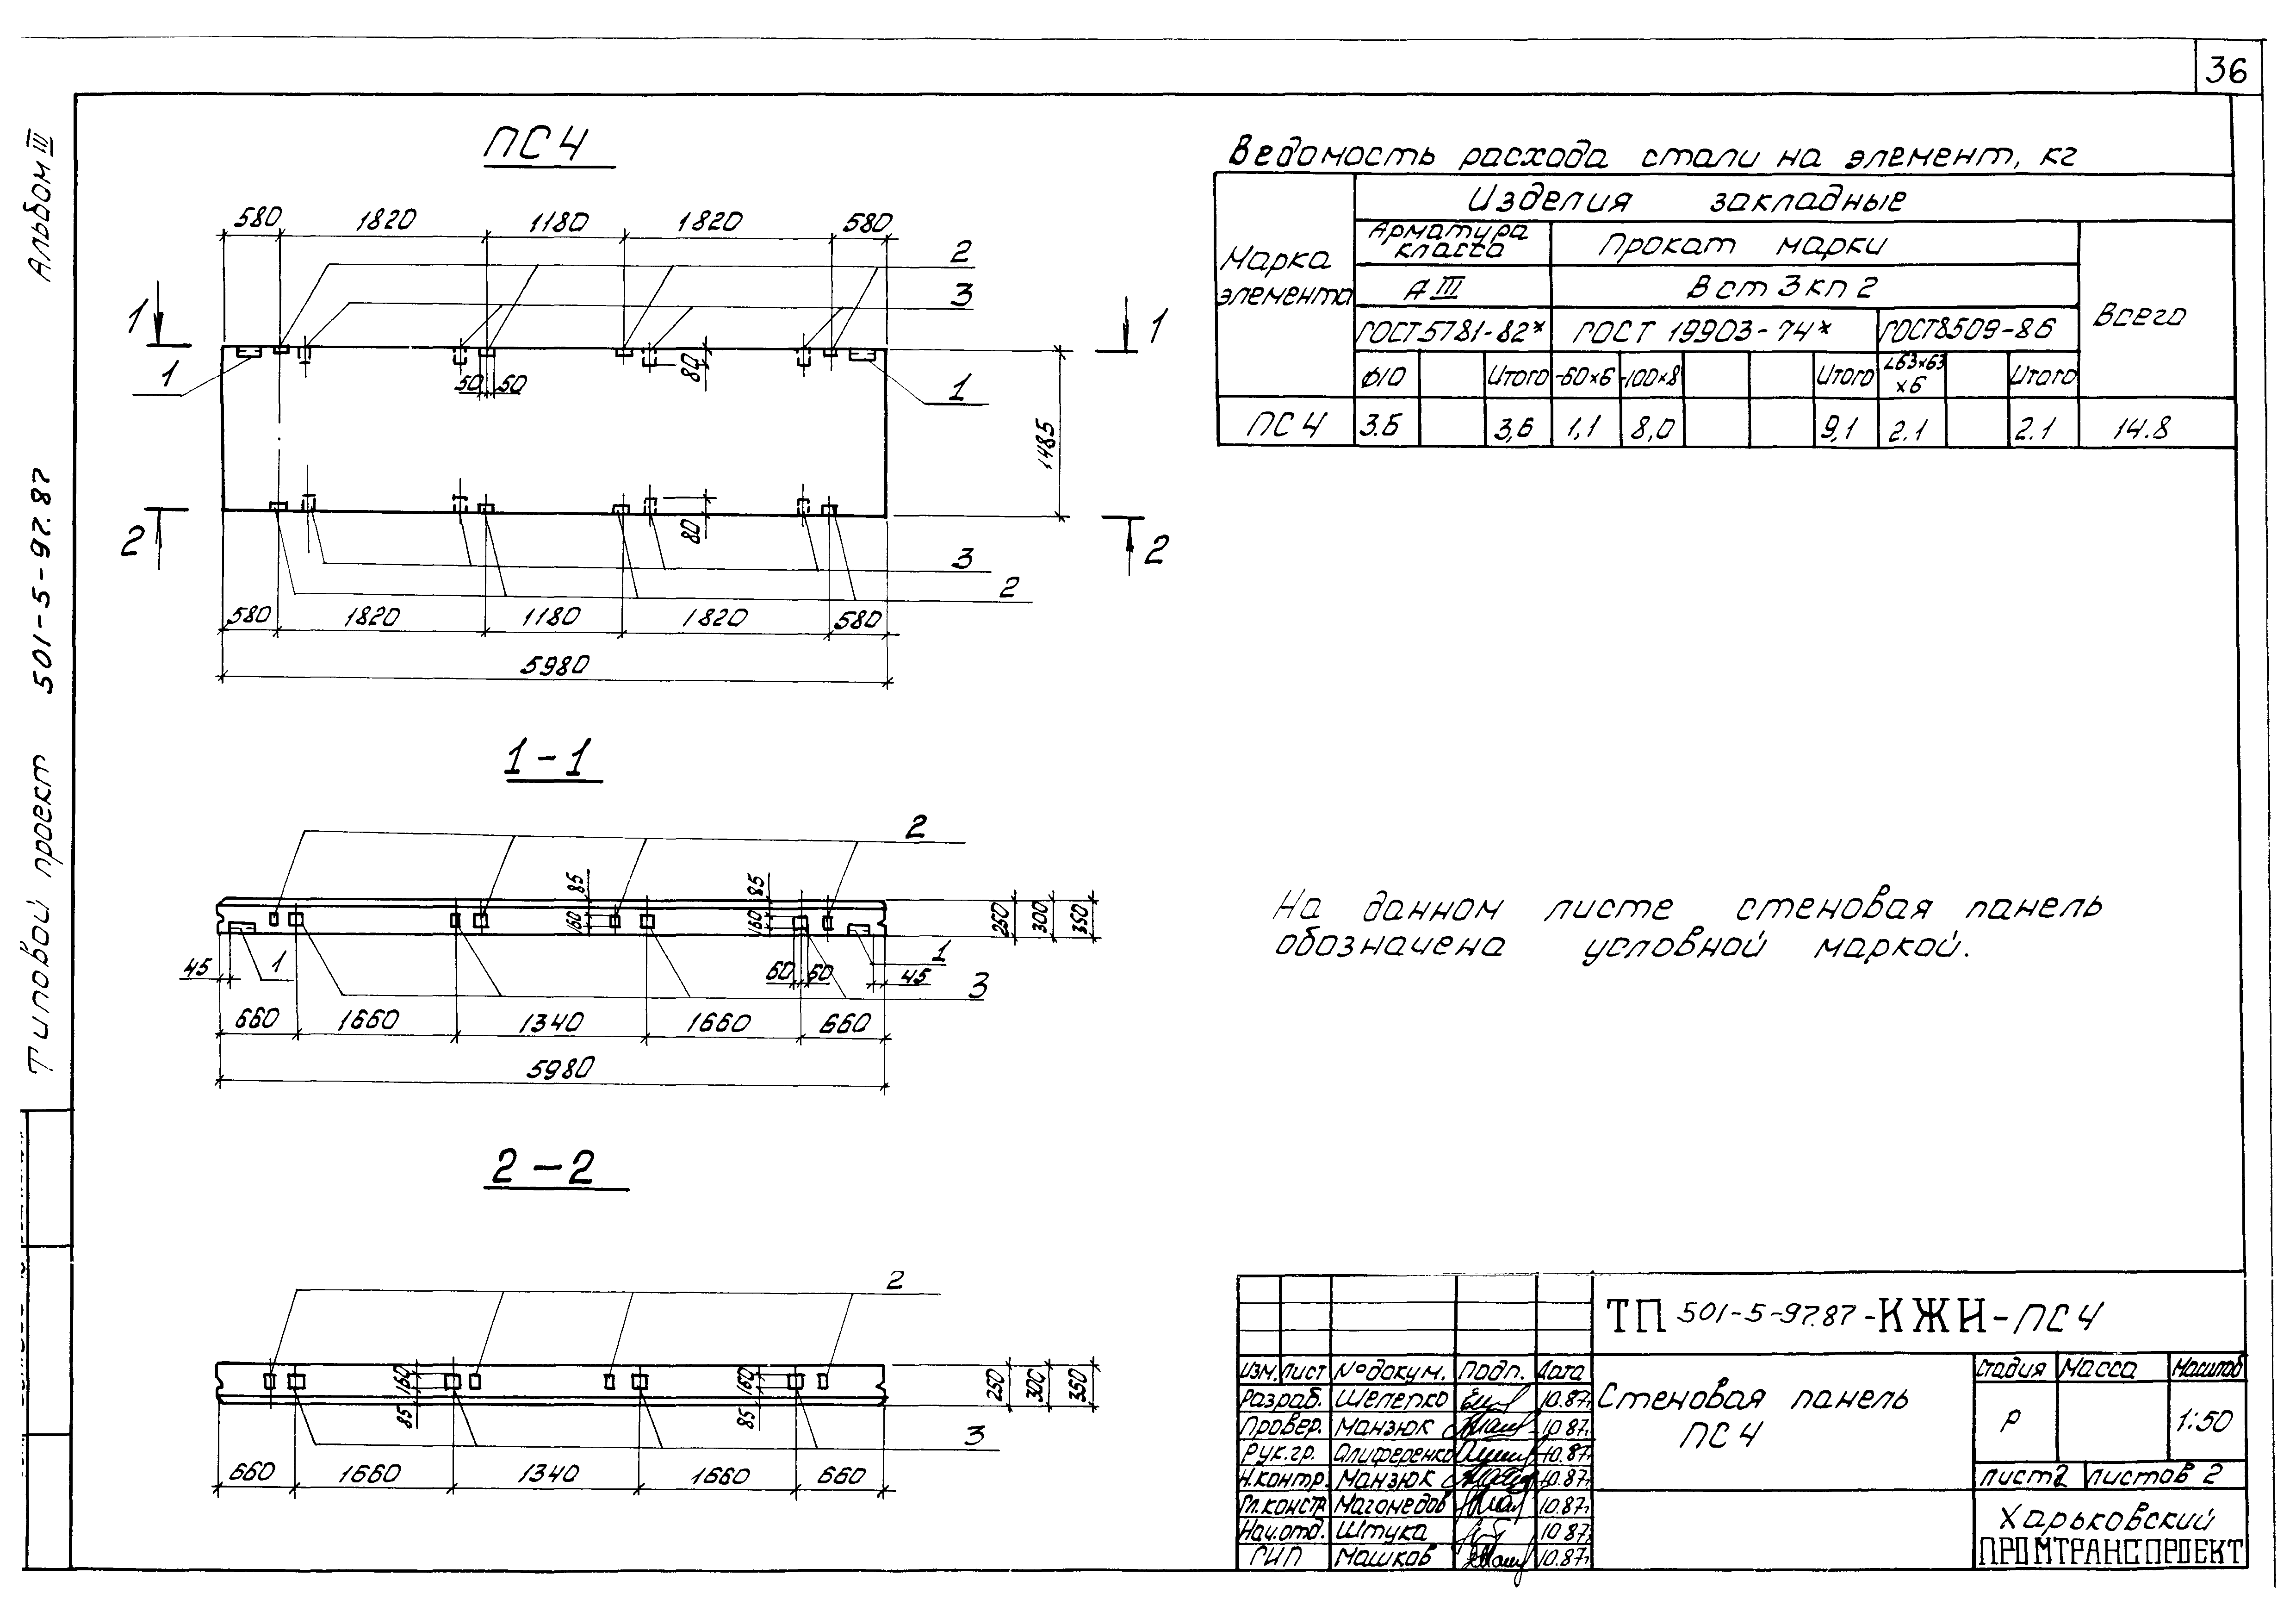 36
Альбом III
Типовой проект 501-5-97.87
ПС4
580 1820 1180 1820 580
2
3
1 1
1 1
50 50 80
1485
2 2
80
3
2
580 1820 1180 1820 580
5980
1-1
2
85 85
160 160
250 300 350
45 1 60 60 1 45
3
660 1660 1340 1660 660
5980
2-2
2
160 160
85 85
250 300 350
3
660 1660 1340 1660 660
Ведомость расхода стали на элемент, кг
Марка элемента
Изделия закладные
Арматура класса
Прокат марки
Всего
А III
Вст3кп2
ГОСТ5781-82* ГОСТ 19903-74* ГОСТ8509-86
∅10 Итого -60×6 -100×8 Итого ∟63×63×6 Итого
ПС4 3.6 3,6 1,1 8,0 9,1 2.1 2.1 14.8
На данном листе стеновая панель
обозначена условной маркой.
ТП 501-5-97.87-КЖИ-ПС4
Изм. Лист № докум. Подп. Дата
Разраб. Шепепко 10.87г.
Провер. Манзюк 10.87г.
Рук.гр. Алиференко 10.87г.
Н.контр. Манзюк 10.87г.
Гл.констр. Магомедов 10.87г.
Нач.отд. Штука 10.87г.
ГИП Машков 10.87г.
Стеновая панель
ПС4
Стадия Масса Масштаб
Р 1:50
Лист 2 Листов 2
Харьковский
ПРОМТРАНСПРОЕКТ